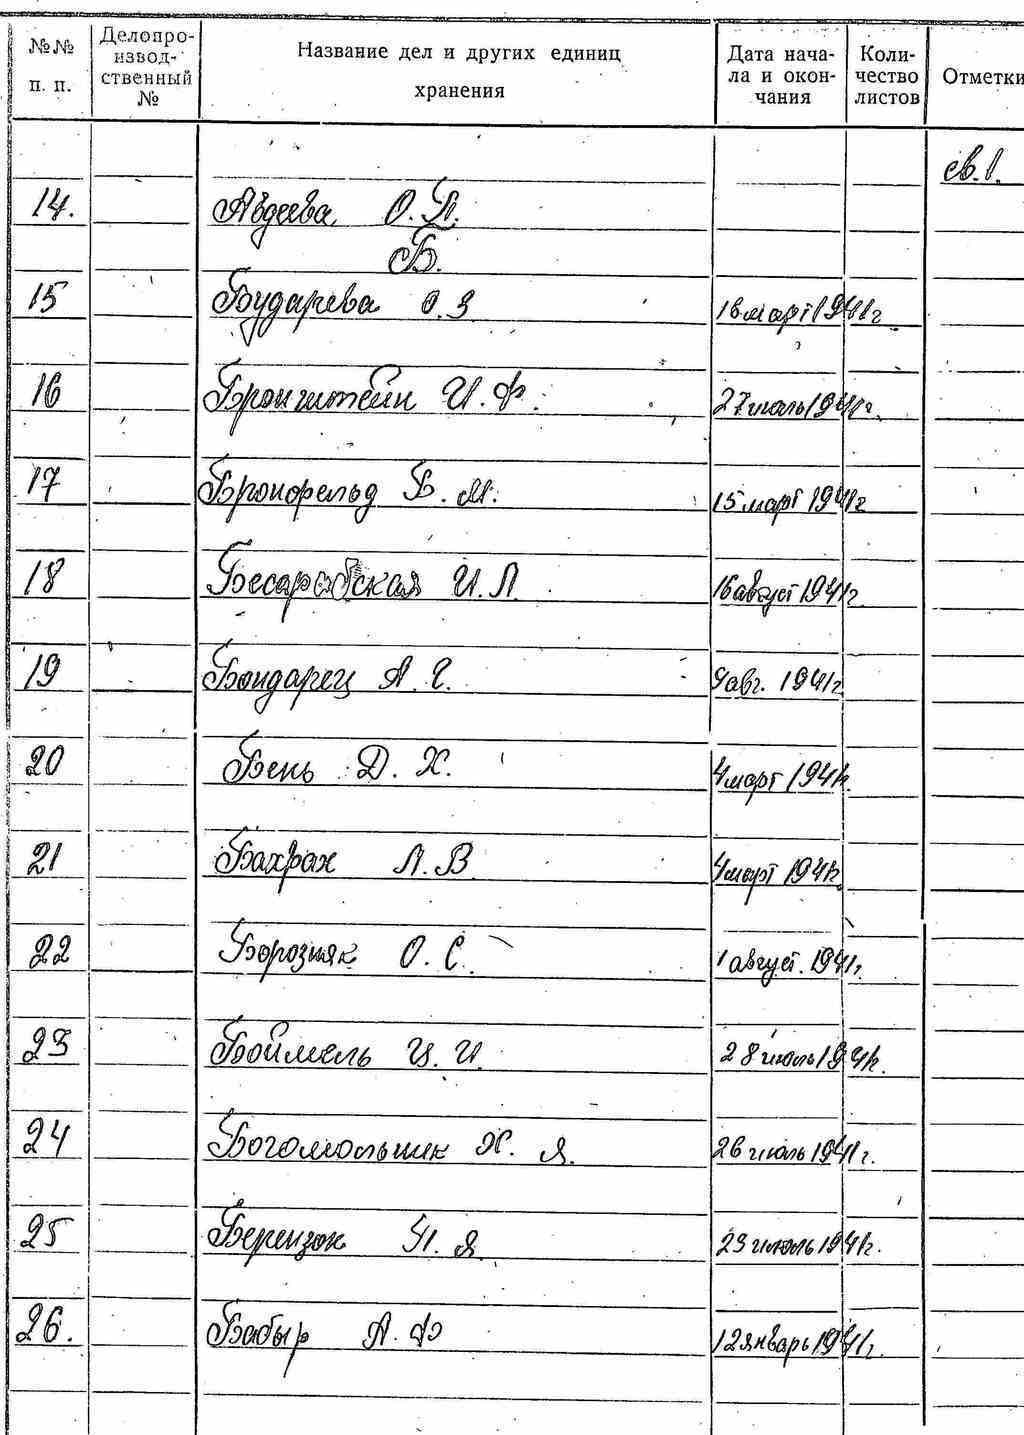 №№ п. п. Делопро-извод-ственный № Название дел и других единиц хранения Дата нача-ла и окон-чания Коли-чество листов Отметки
св. 1.
14. Авдеева О. П.
Б.
15 Бударева О. З 16 март 1941 г
16 Бронштейн И. Ф. 27 июль 1941 г.
17 Бронфельд Б. М. 15 март 1941 г
18 Бесарабская И. Л. 16 август 1941 г.
19 Бондарец А. Г. 9 авг. 1941 г
20 Бень Д. Х. 4 март 1941 г.
21 Бахрах Л. В. 4 март 1941 г.
22 Борозняк О. С. 1 август. 1941 г.
23 Боймель Ц. И. 28 июль 1941 г.
24 Богомольник Х. Я. 26 июль 1941 г.
25 Берензон Я. 29 июль 1941 г.
26. Бабыр А. Ф 12 январь 1941 г.